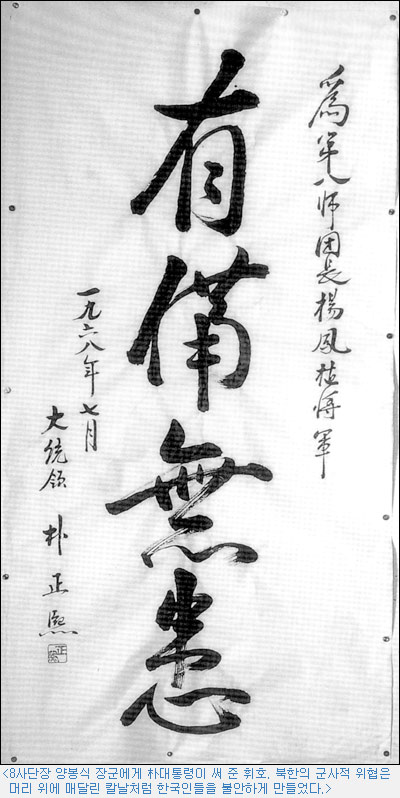 爲第八师团長楊鳳植將軍
有備無患
一九六八年 七月
大統領 朴正熙
<8사단장 양봉식 장군에게 朴대통령이 써 준 휘호. 북한의 군사적 위협은
머리 위에 매달린 칼날처럼 한국인들을 불안하게 만들었다.>